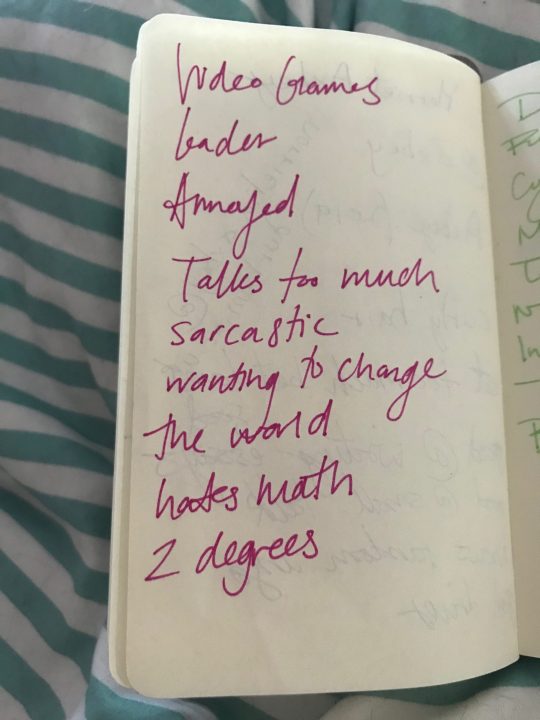 Video Games
leader
Annoyed
Talks too much
sarcastic
wanting to change
the world
hates math
2 degrees